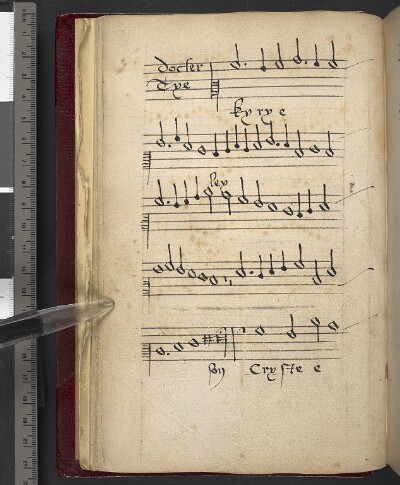 docter
Tye
kyrye
ley
son
Cryste e